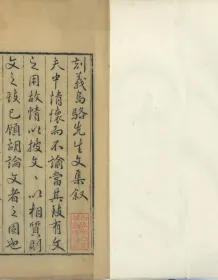 刻義烏駱先生文集叙
夫中情懷而不諭當其故有文
之用故情以披文文以相質則
文之致已顧胡論文者之園也